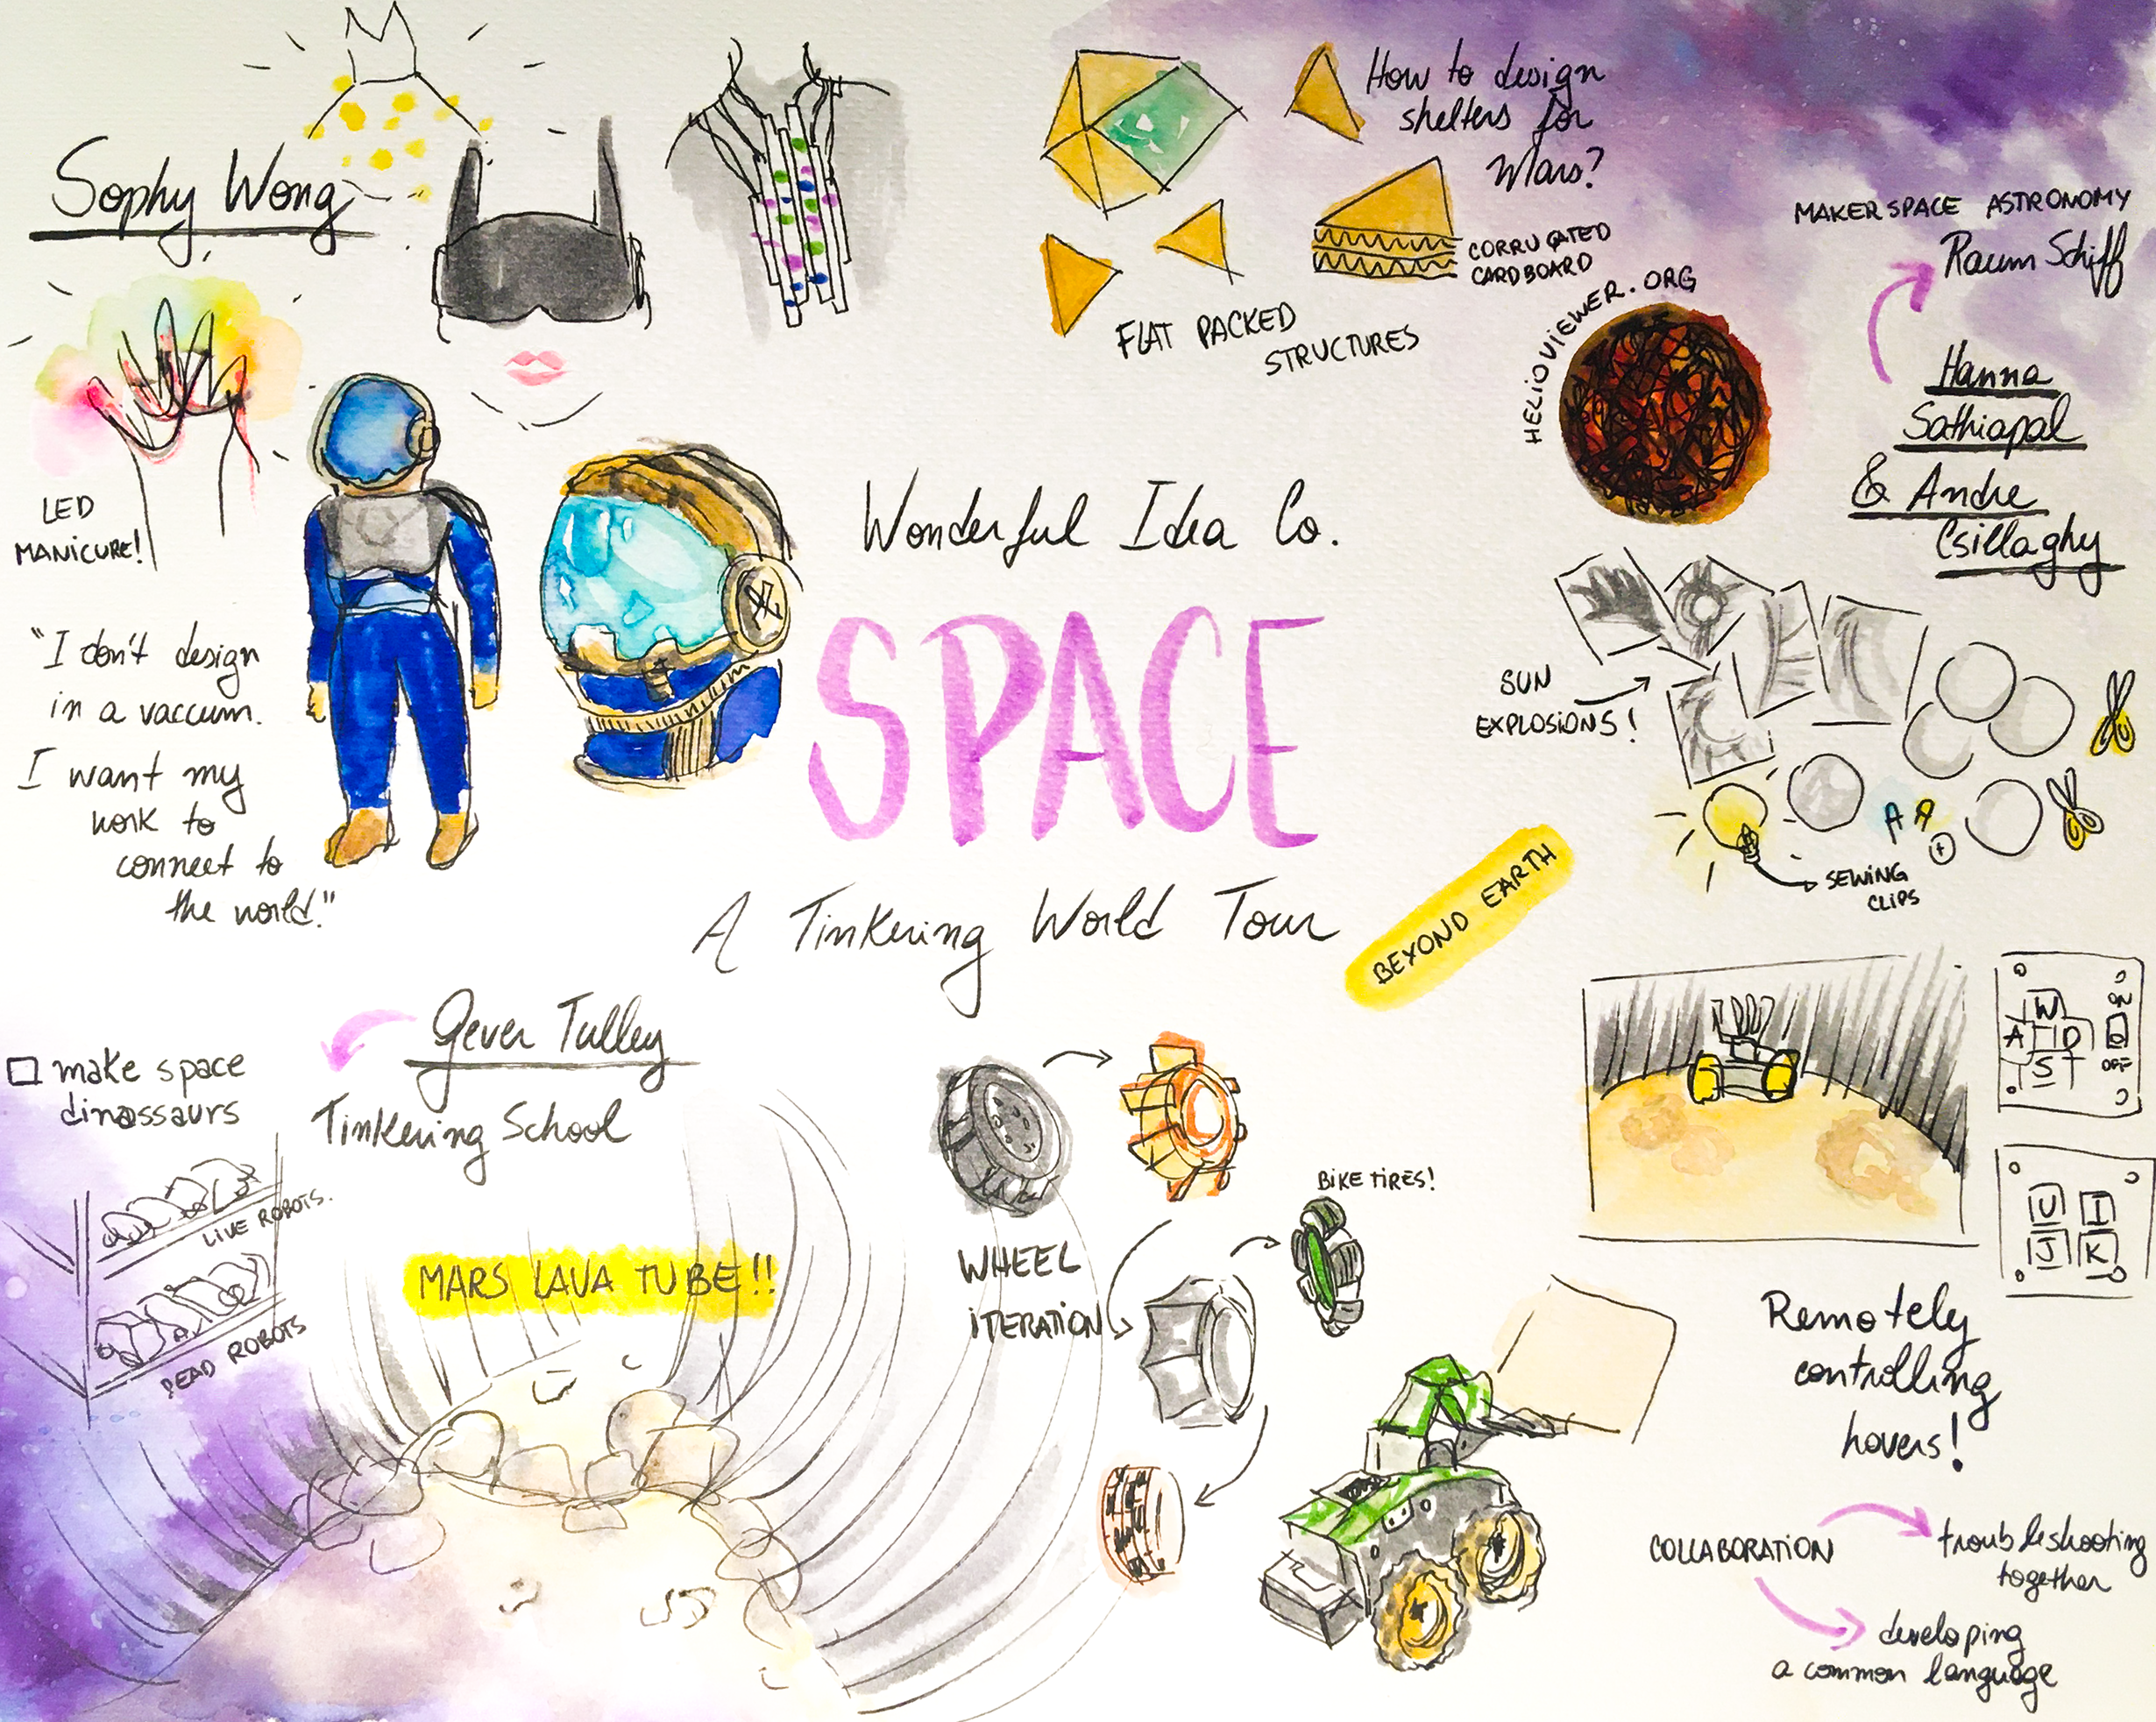 Sophy Wong
LED
MANICURE!
"I don't design
in a vaccum.
I want my
work to
connect to
the world."
How to design
shelters for
Mars?
CORRUGATED
CARDBOARD
FLAT PACKED
STRUCTURES
HELIOVIEWER.ORG
MAKERSPACE ASTRONOMY
Raum Schiff
Hanna
Sathiapal
& Andre
Csillaghy
SUN
EXPLOSIONS!
SEWING
CLIPS
Wonderful Idea Co.
SPACE
A Tinkering World Tour
BEYOND EARTH
Gever Tulley
Tinkering School
make space
dinassaurs
LIVE ROBOTS.
DEAD ROBOTS
MARS LAVA TUBE!!
WHEEL
ITERATION
BIKE TIRES!
W
A D
S
ON
OFF
U I
J K
Remotely
controlling
hovers!
COLLABORATION
troubleshooting
together
developing
a common language